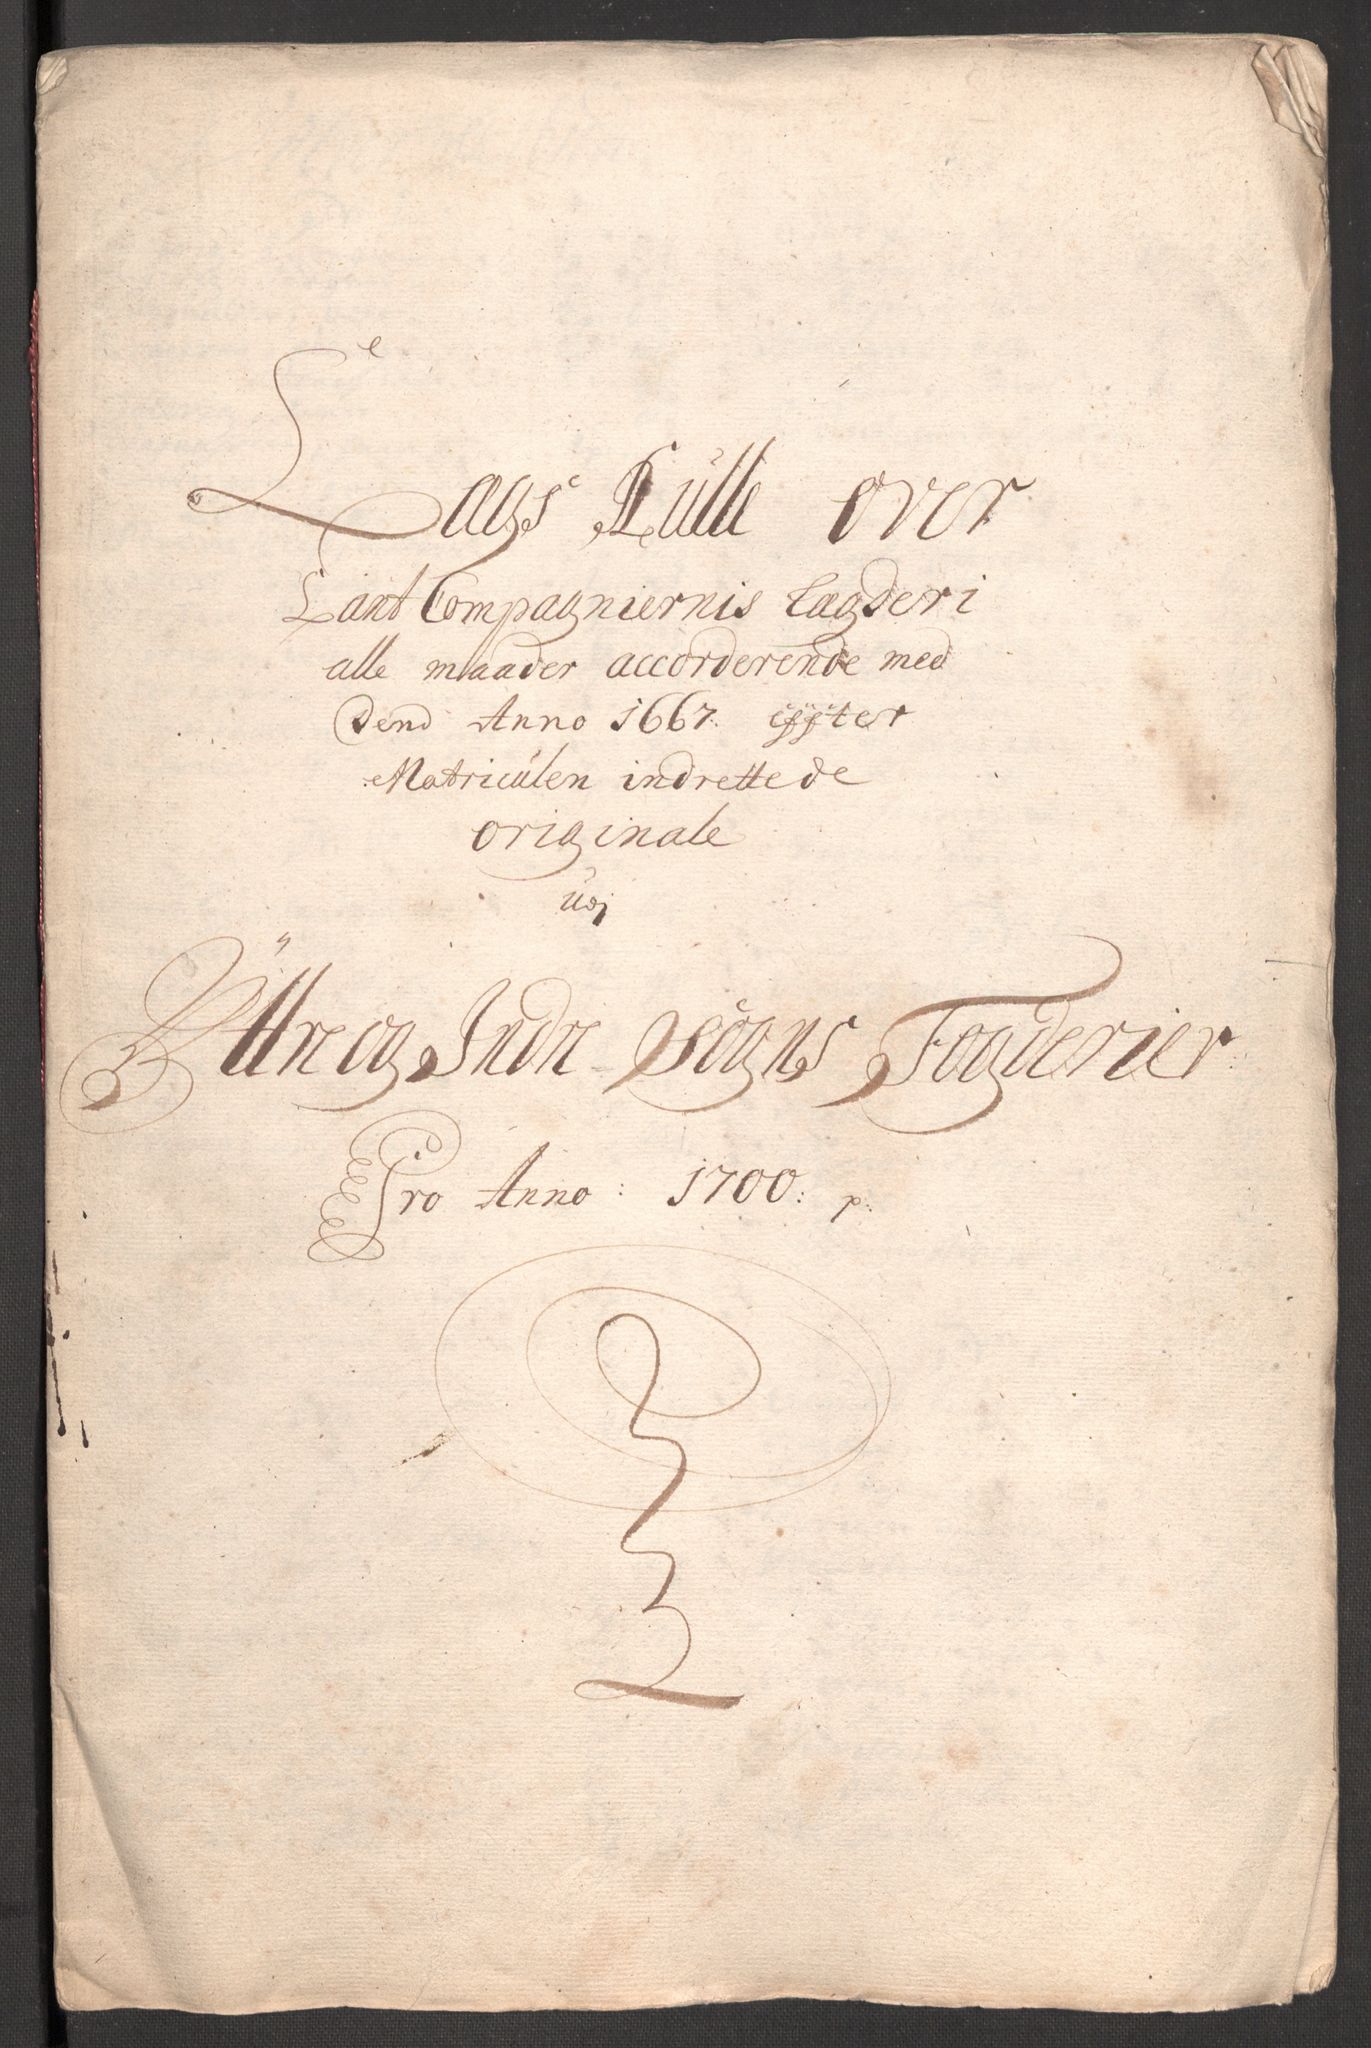 Lægs Rulle over
Lant Compagniernis Lægder i
alle maader accorderende med
dend Anno 1667. effter
Matriculen indrettede
originale
Udj
Ÿttre og Indre Sogns Fogderier
Pro Anno: 1700: p: